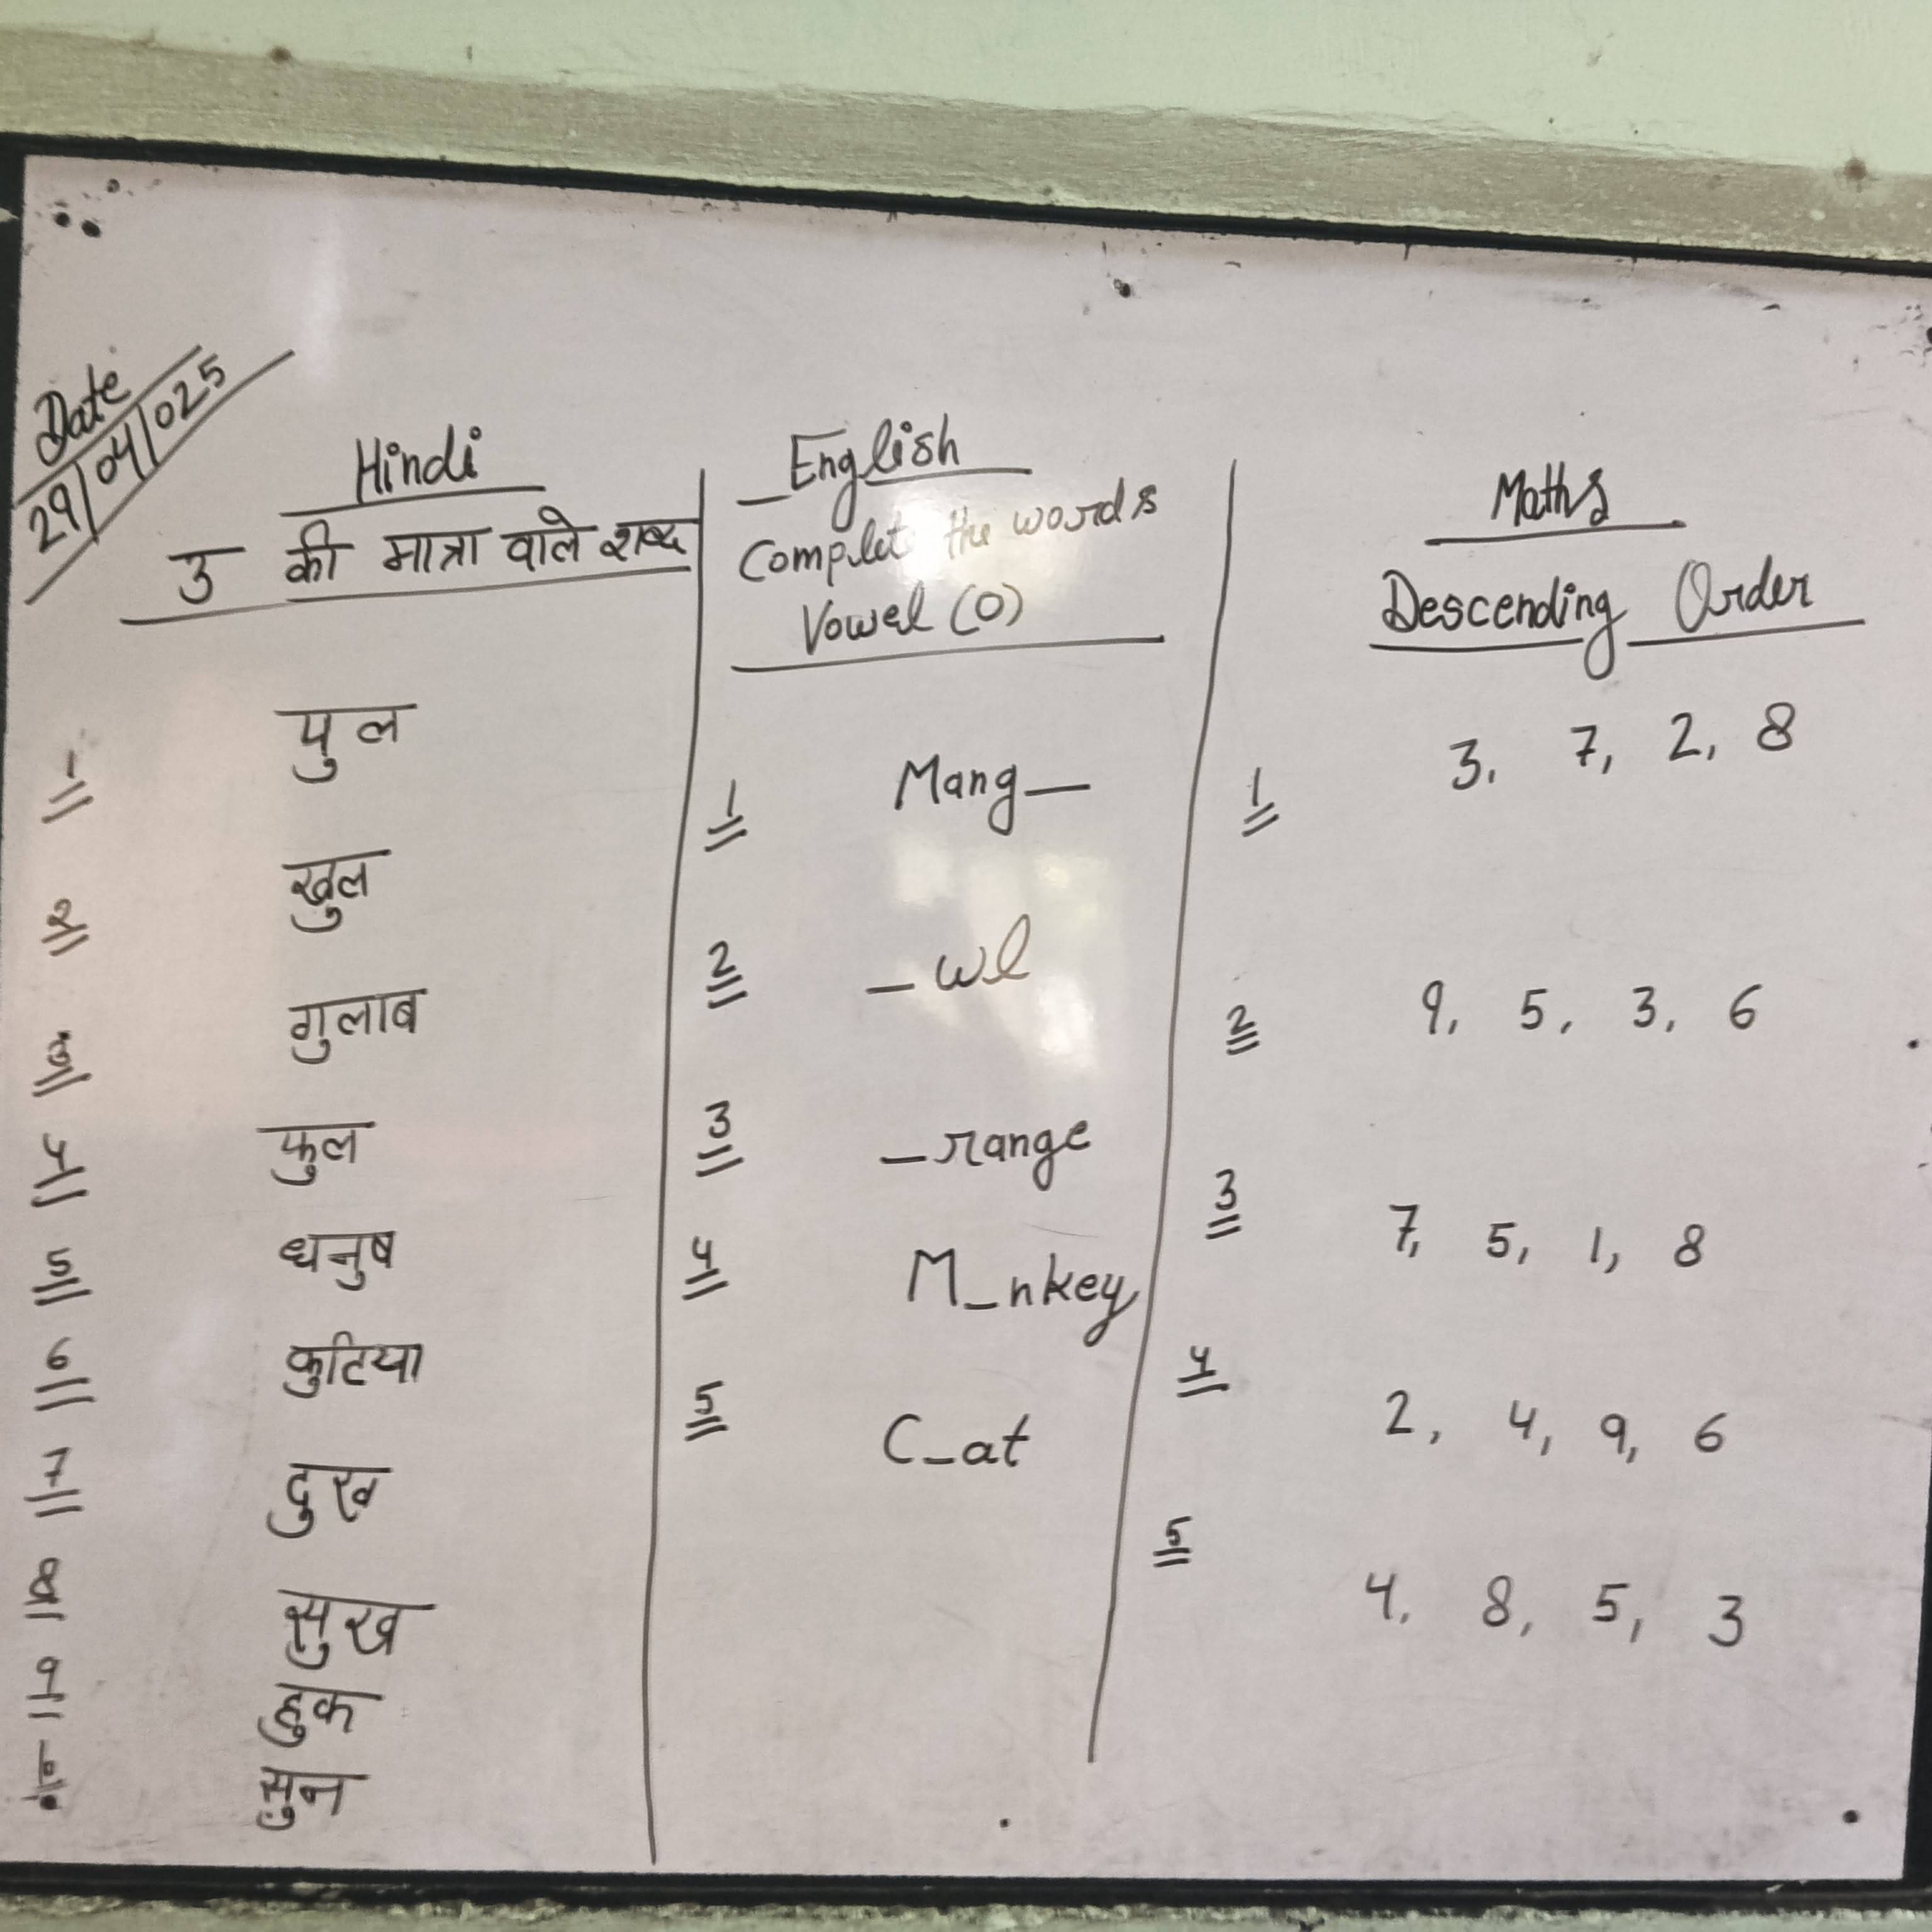 Date
29/04/025
Hindi
उ की मात्रा वाले शब्द
1 पुल
2 खुल
3 गुलाब
4 फुल
5 धनुष
6 कुटिया
7 दुख
8 सुख
9 हुक
10 सुन
English
Complete the words
Vowel (O)
1 Mang_
2 _wl
3 _range
4 M_nkey
5 C_at
Maths
Descending Order
1 3, 7, 2, 8
2 9, 5, 3, 6
3 7, 5, 1, 8
4 2, 4, 9, 6
5 4, 8, 5, 3